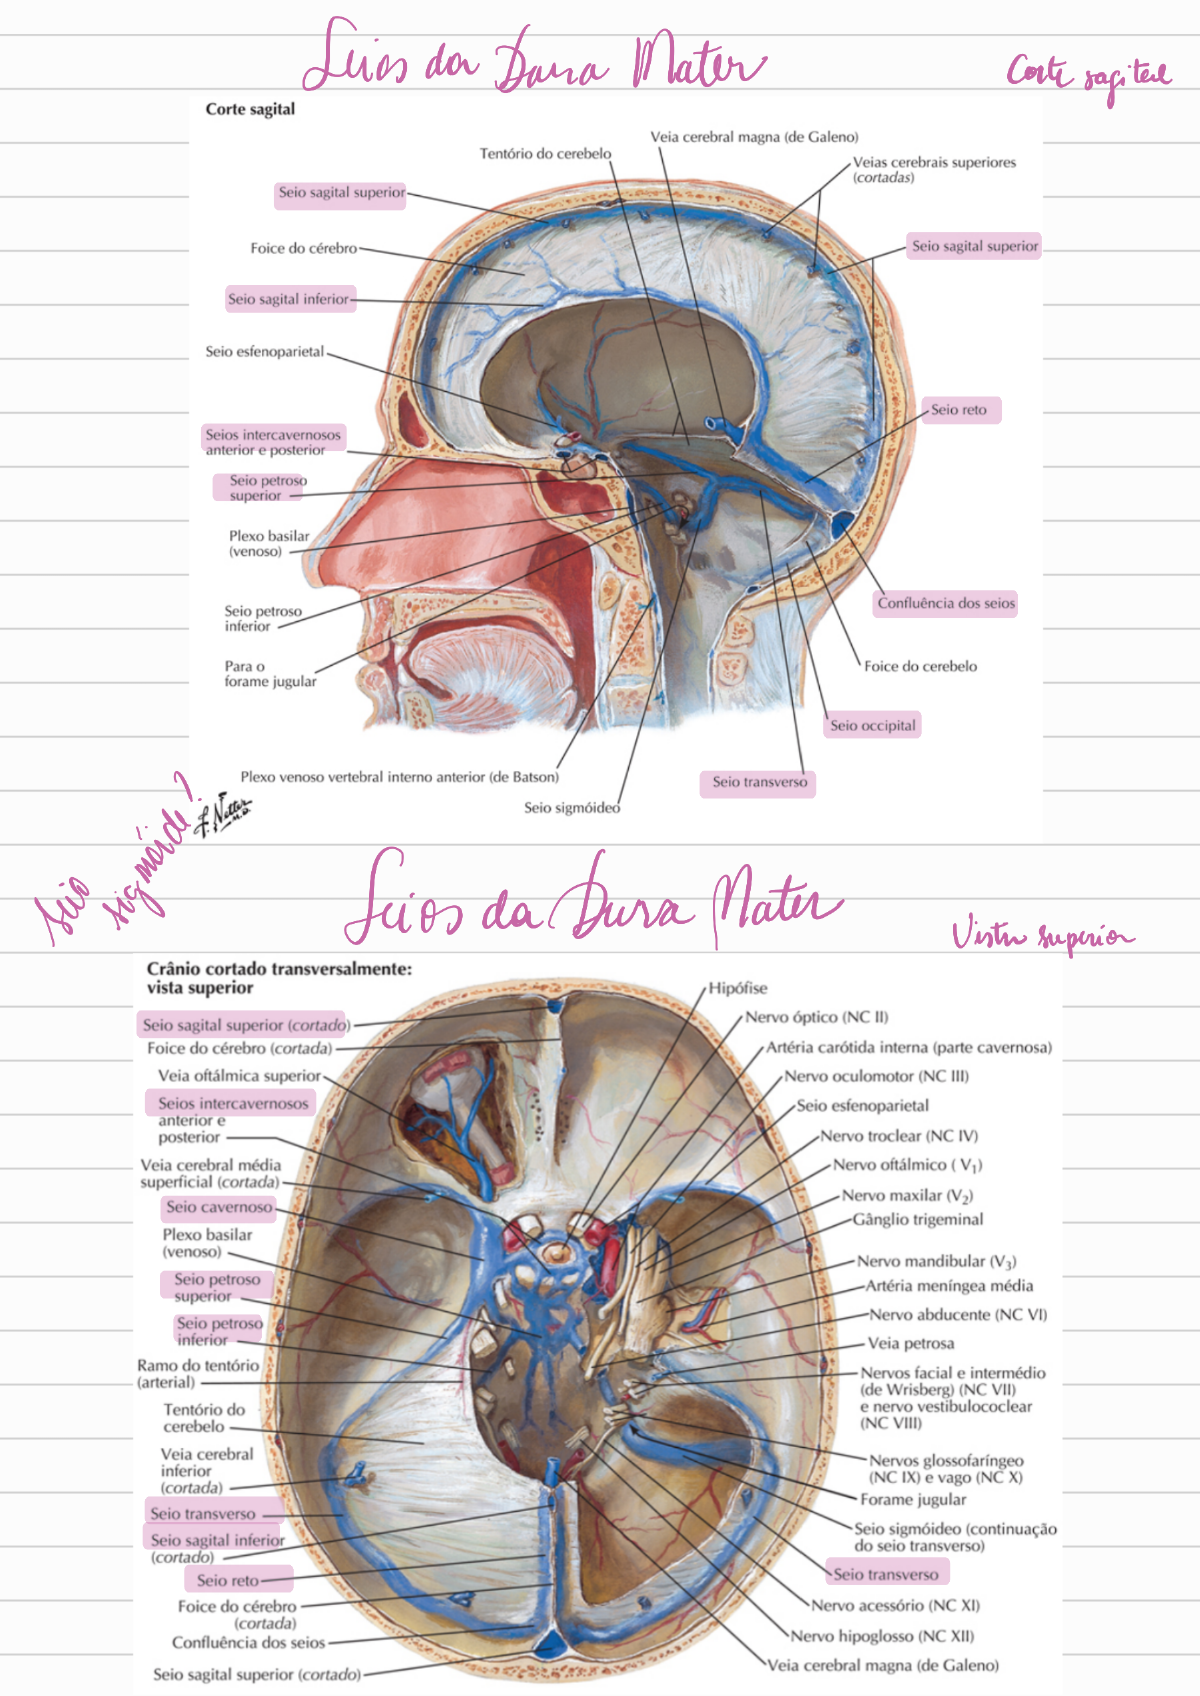 Seios da Dura Mater
Corte sagital
Corte sagital
Veia cerebral magna (de Galeno)
Tentório do cerebelo
Veias cerebrais superiores
(cortadas)
Seio sagital superior
Seio sagital superior
Foice do cérebro
Seio sagital inferior
Seio esfenoparietal
Seio reto
Seios intercavernosos
anterior e posterior
Seio petroso
superior
Plexo basilar
(venoso)
Confluência dos seios
Seio petroso
inferior
Foice do cerebelo
Para o
forame jugular
Seio occipital
Plexo venoso vertebral interno anterior (de Batson)
Seio transverso
Seio sigmóideo
F. Netter
M.D.
Seio
sigmóide?
Seios da Dura Mater
Vista superior
Crânio cortado transversalmente:
vista superior
Seio sagital superior (cortado)
Foice do cérebro (cortada)
Veia oftálmica superior
Seios intercavernosos
anterior e
posterior
Veia cerebral média
superficial (cortada)
Seio cavernoso
Plexo basilar
(venoso)
Seio petroso
superior
Seio petroso
inferior
Ramo do tentório
(arterial)
Tentório do
cerebelo
Veia cerebral
inferior
(cortada)
Seio transverso
Seio sagital inferior
(cortado)
Seio reto
Foice do cérebro
(cortada)
Confluência dos seios
Seio sagital superior (cortado)
Hipófise
Nervo óptico (NC II)
Artéria carótida interna (parte cavernosa)
Nervo oculomotor (NC III)
Seio esfenoparietal
Nervo troclear (NC IV)
Nervo oftálmico ( V1)
Nervo maxilar (V2)
Gânglio trigeminal
Nervo mandibular (V3)
Artéria meníngea média
Nervo abducente (NC VI)
Veia petrosa
Nervos facial e intermédio
(de Wrisberg) (NC VII)
e nervo vestibulococlear
(NC VIII)
Nervos glossofaríngeo
(NC IX) e vago (NC X)
Forame jugular
Seio sigmóideo (continuação
do seio transverso)
Seio transverso
Nervo acessório (NC XI)
Nervo hipoglosso (NC XII)
Veia cerebral magna (de Galeno)